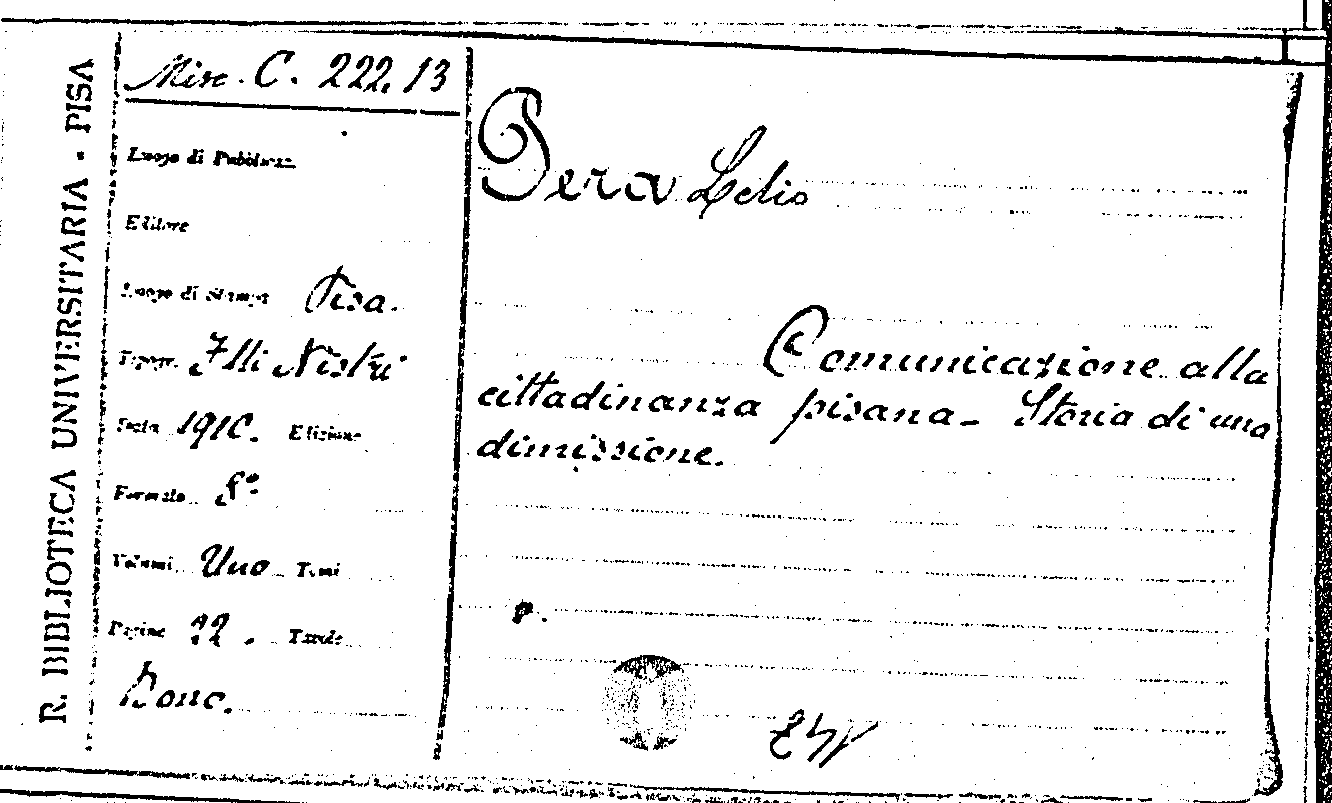 R. BIBLIOTECA UNIVERSITARIA - PISA
Misc. C. 222.13
Luogo di Pubblicaz.
Editore
Luogo di Stampa Pisa.
Tipogr. Flli Nistri
Data 1910. Edizione
Formato 8°
Volumi Uno Tomi
Pagine 22. Tavole
Dono.
Pera Lelio
Comunicazione alla
cittadinanza pisana - Storia di una
dimissione.
p.